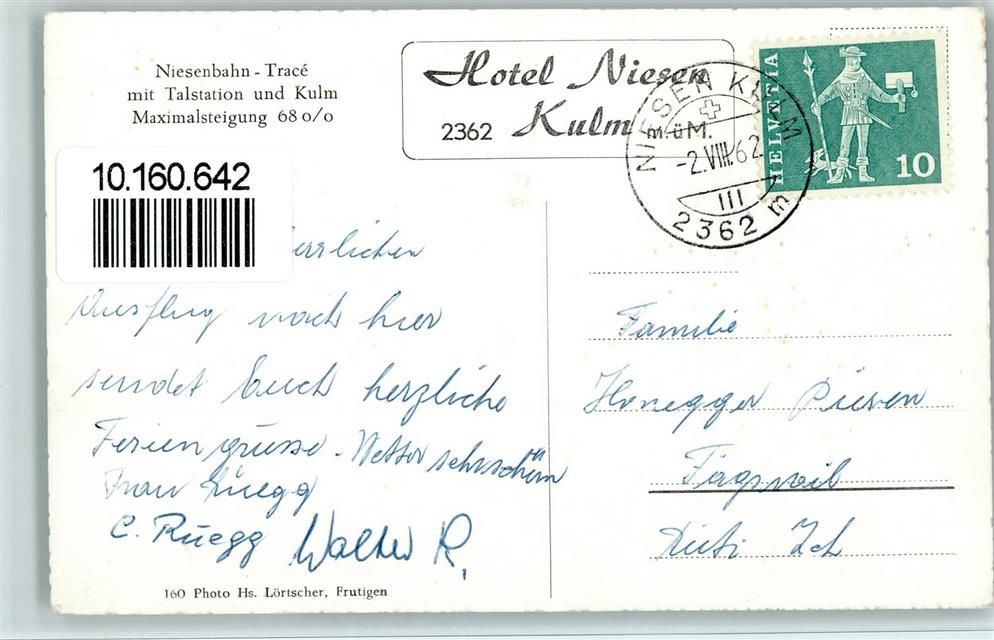 Niesenbahn - Tracé
mit Talstation und Kulm
Maximalsteigung 68 o/o
Hotel Niesen
2362 Kulm
m üM.
NIESEN KULM
-2.VIII.62
III
2362 m
HELVETIA
10
10.160.642
errlichen
Ausflug nach hier
sendet Euch herzliche
Feriengrüsse - Wetter sehr schön
Frau Rüegg
C. Rüegg Walter R.
Familie
Honegger
Fägswil
Rüti Zch
160 Photo Hs. Lörtscher, Frutigen